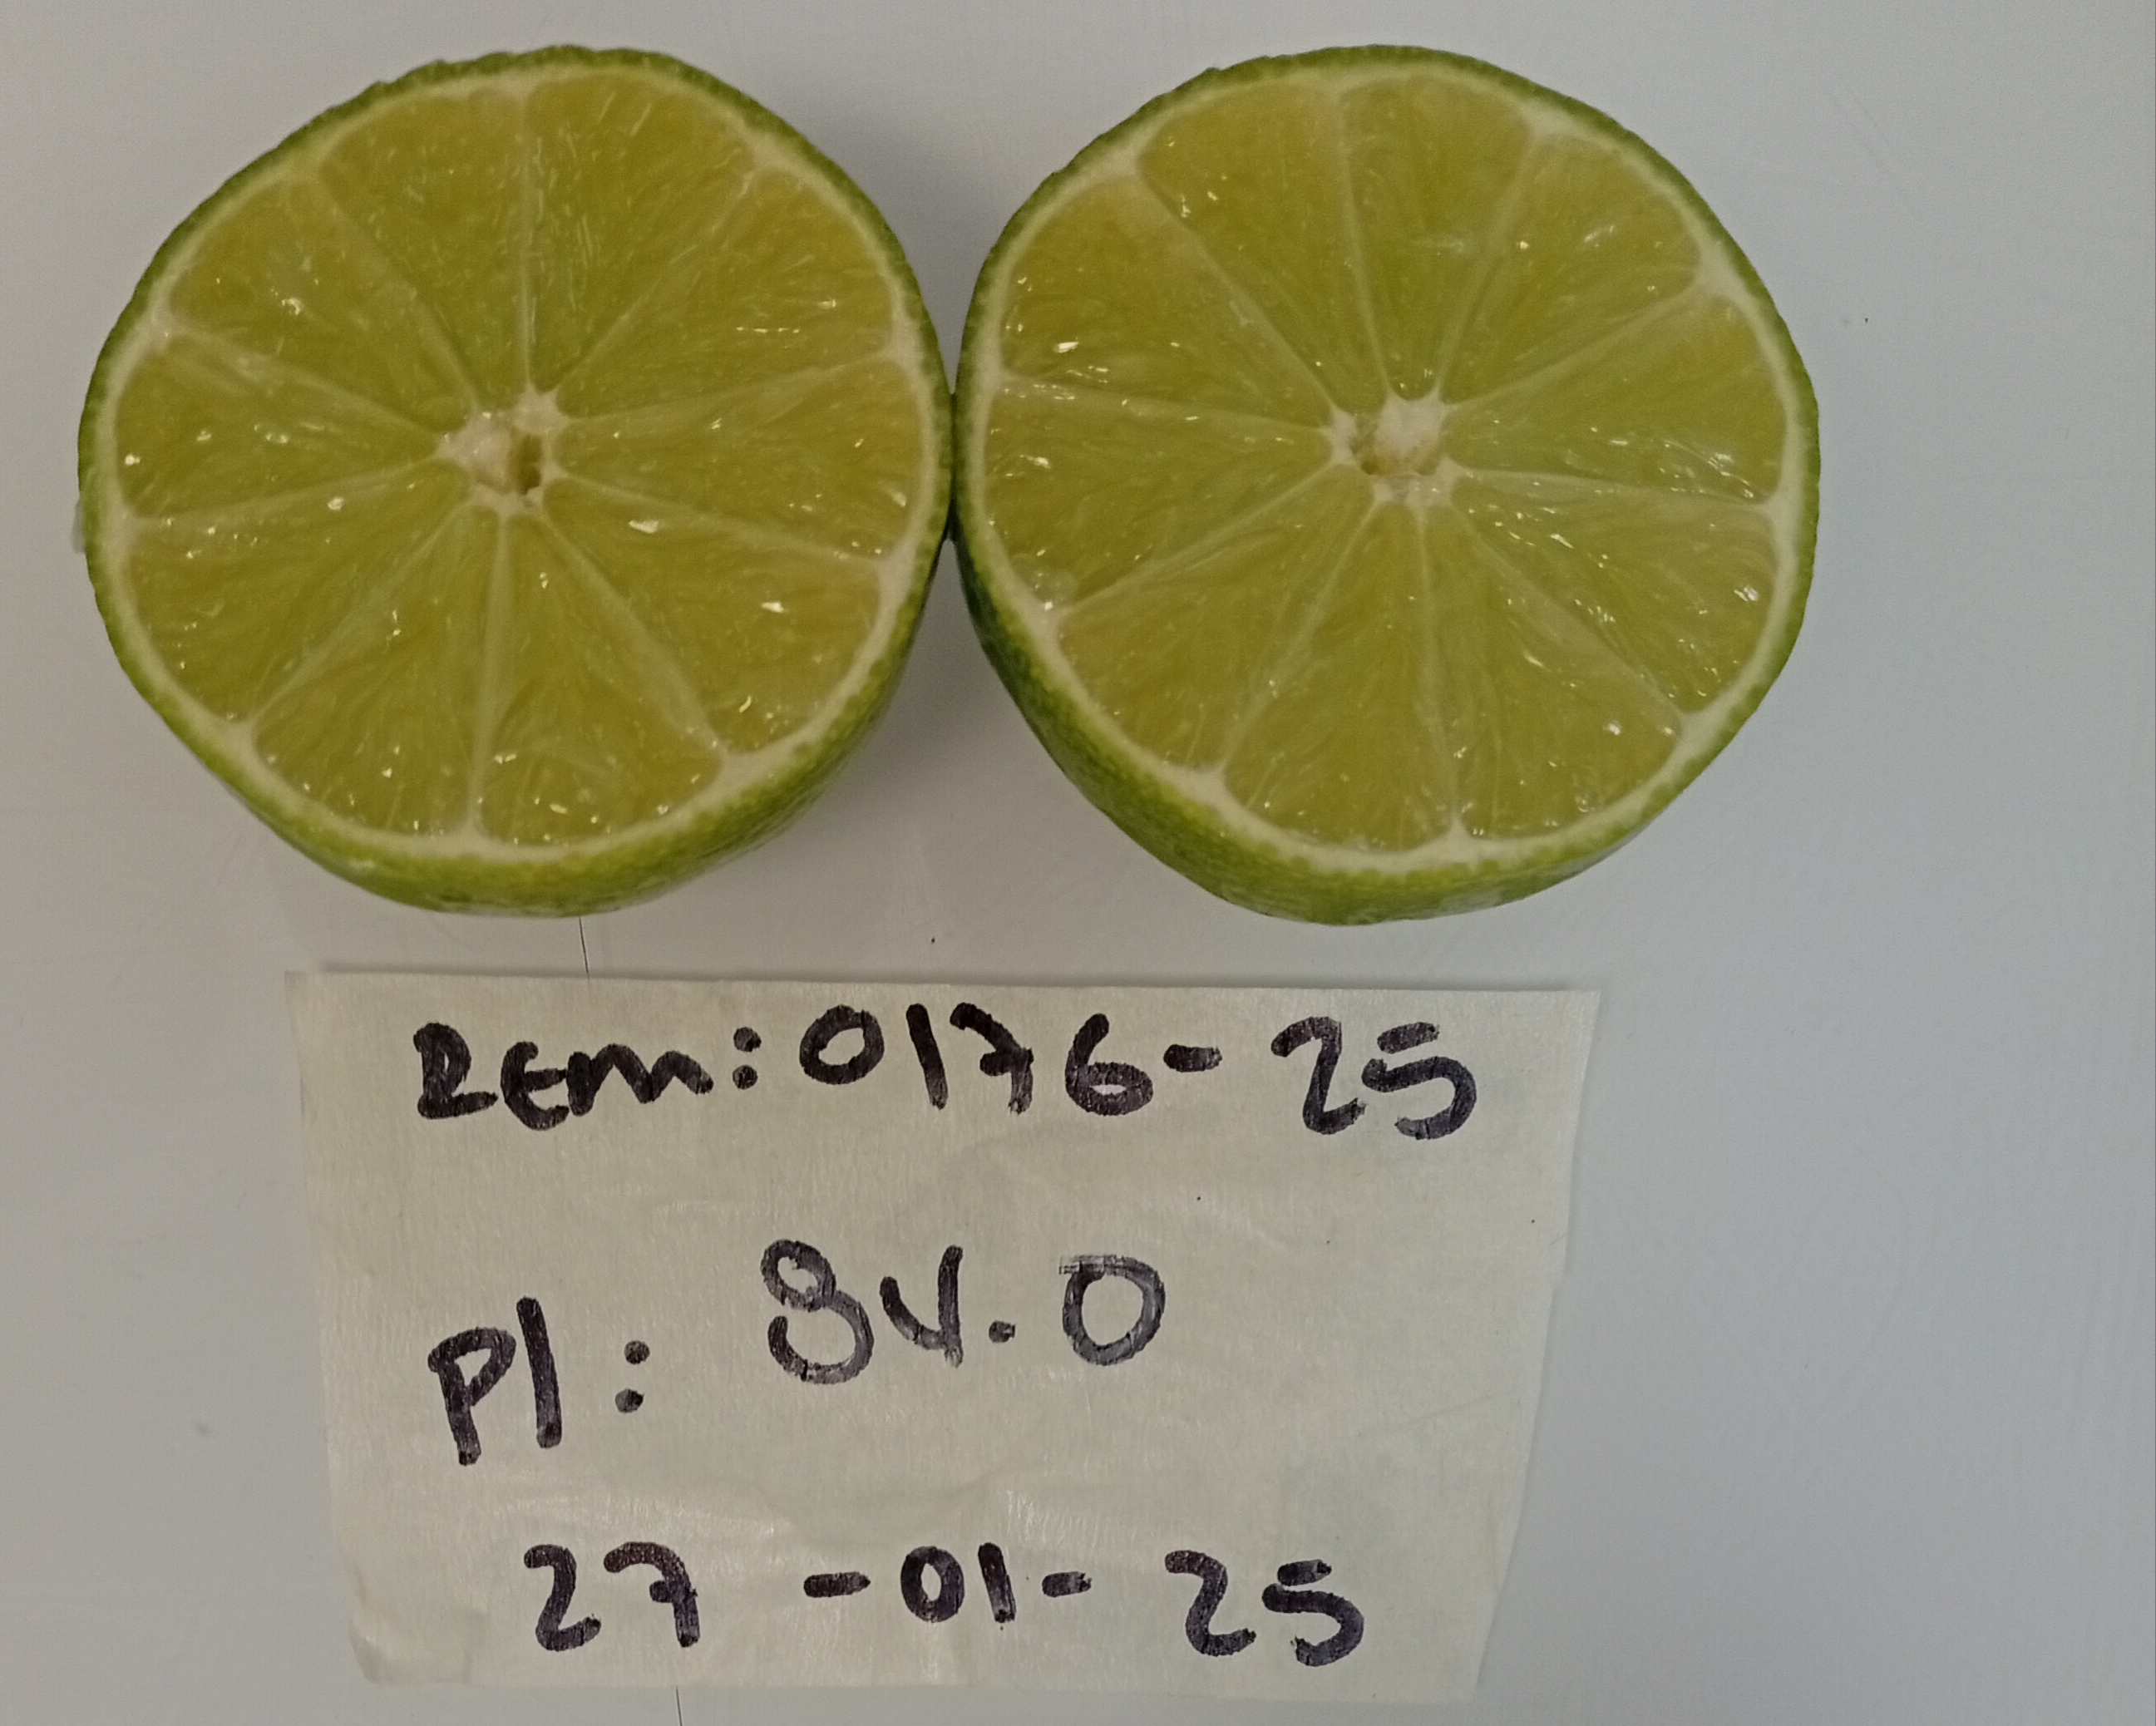 Rem: 0176-25
Pl: 84.0
27-01-25